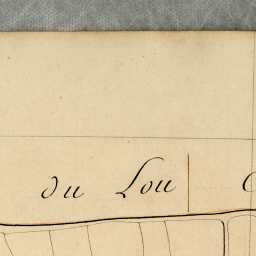 du Lou